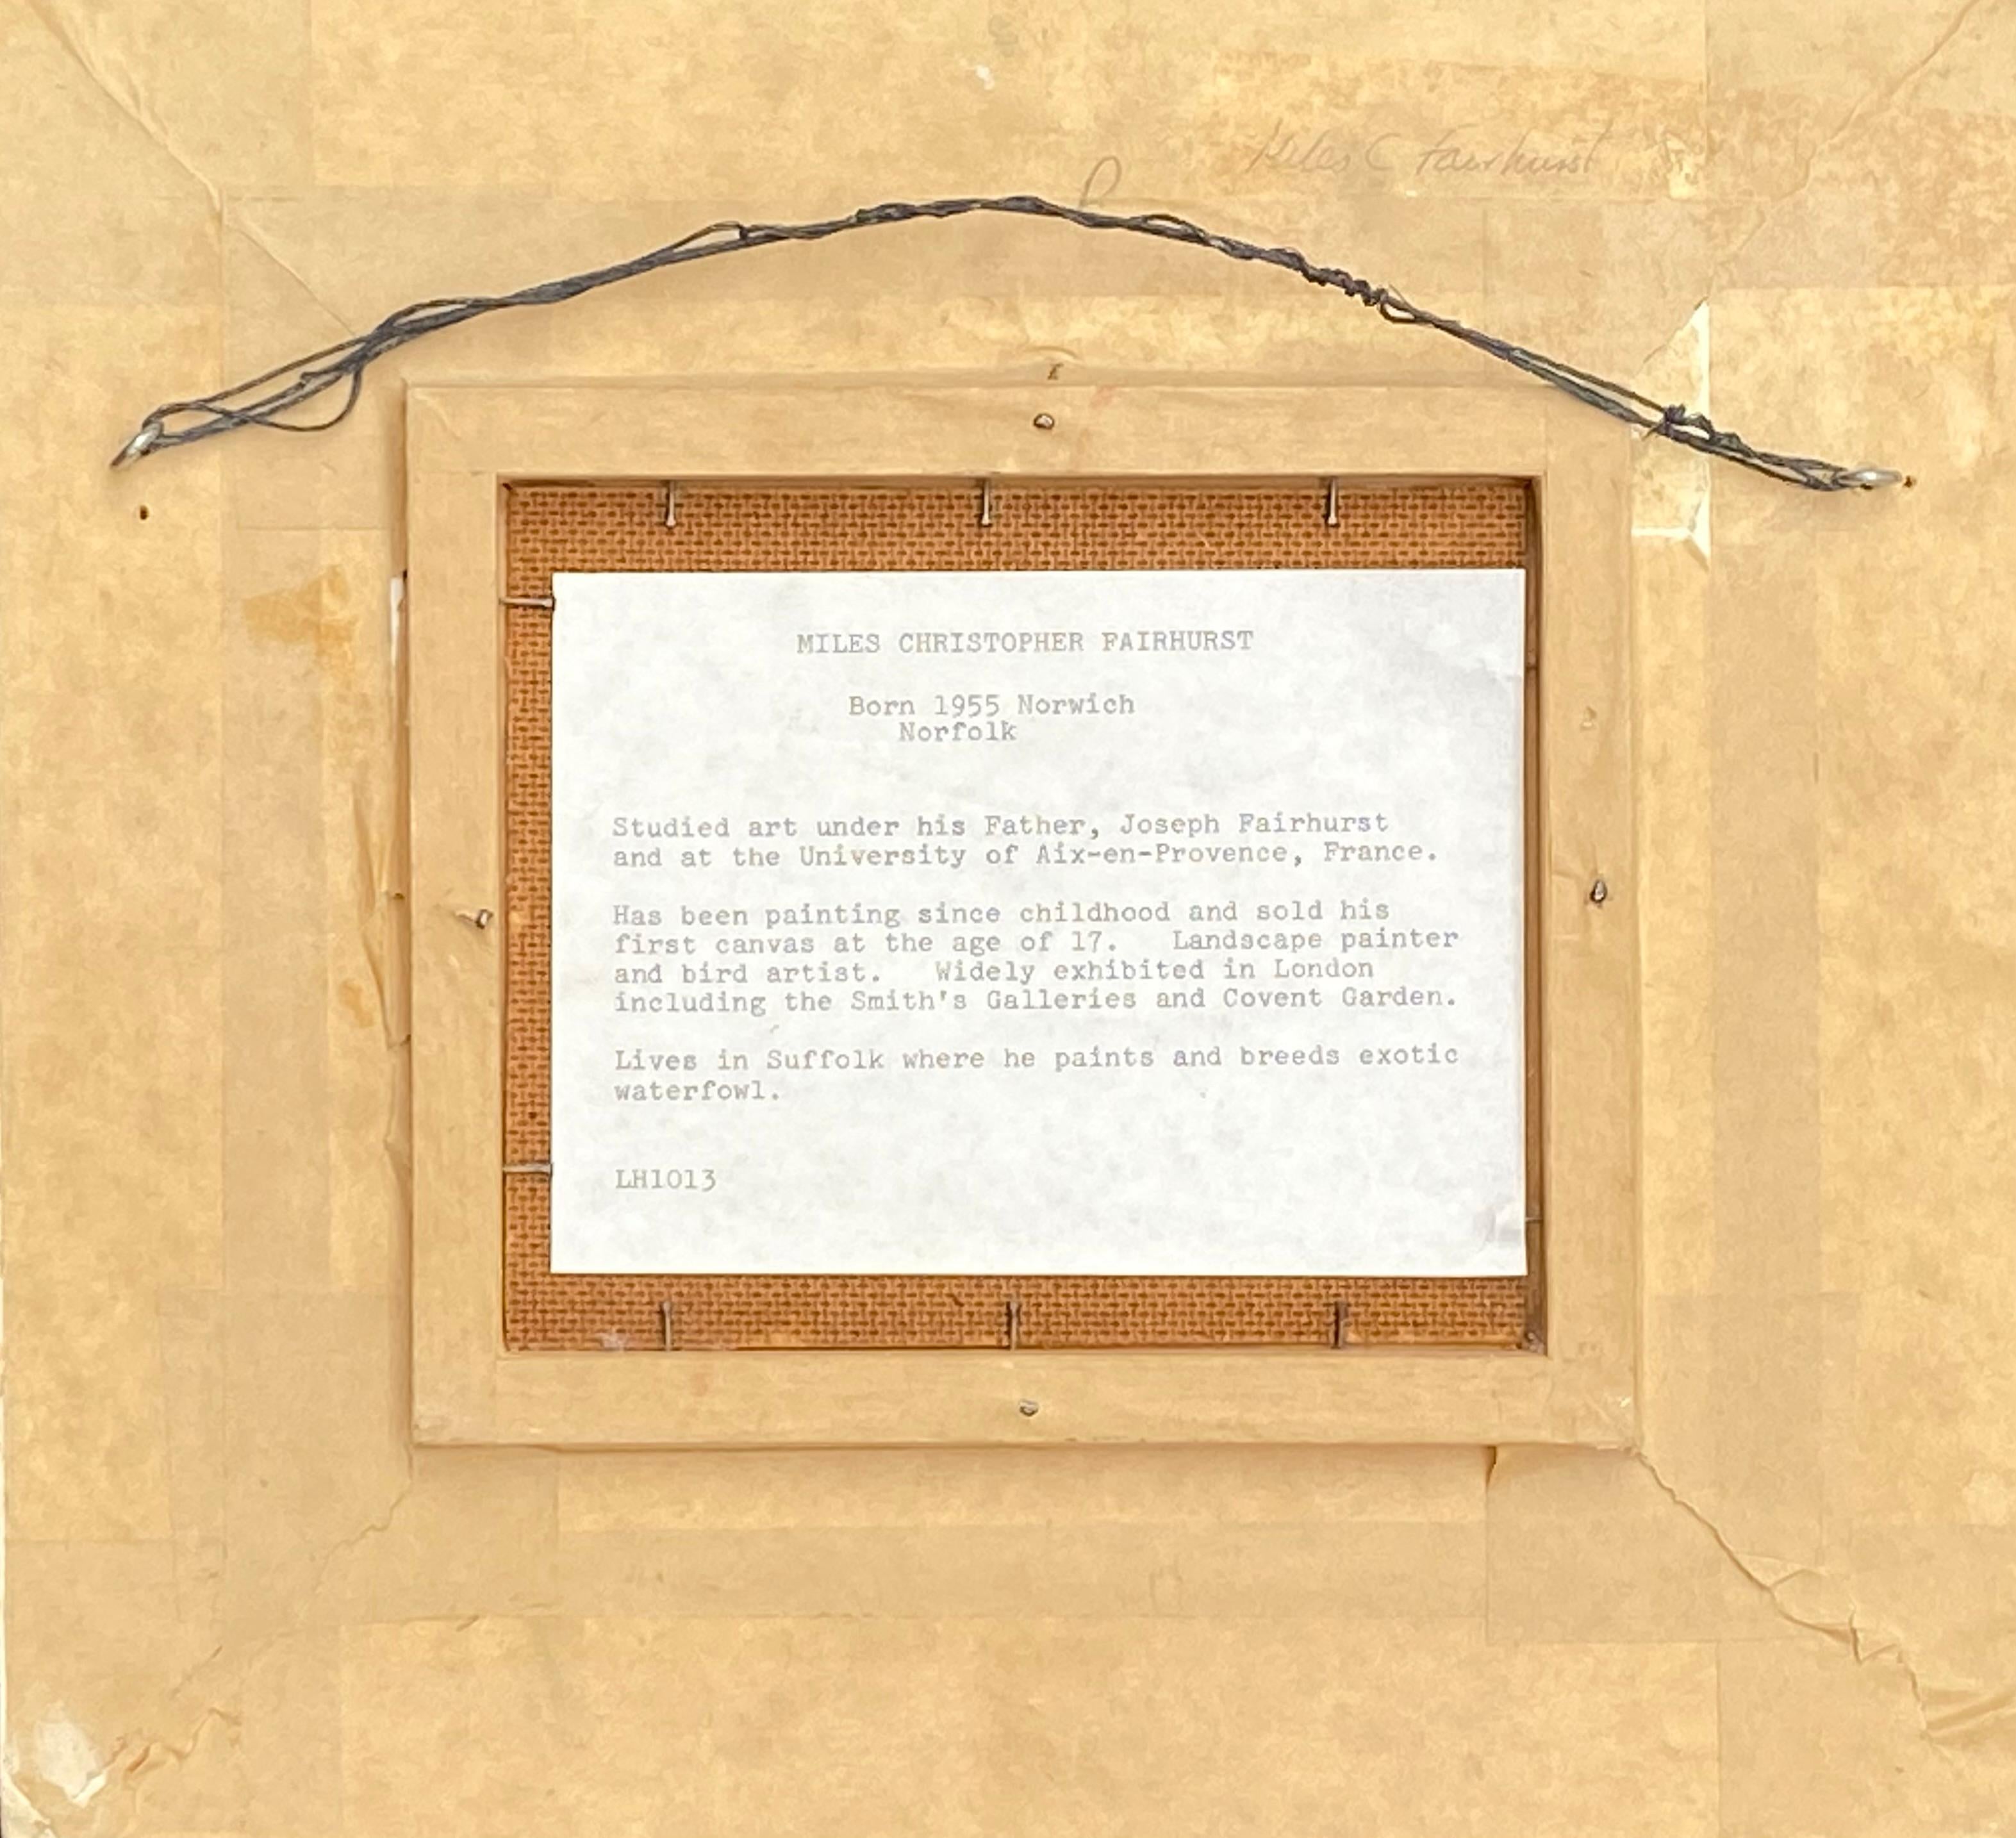 Miles C Fairhurst
MILES CHRISTOPHER FAIRHURST
Born 1955 Norwich
Norfolk
Studied art under his Father, Joseph Fairhurst
and at the University of Aix-en-Provence, France.
Has been painting since childhood and sold his
first canvas at the age of 17. Landscape painter
and bird artist. Widely exhibited in London
including the Smith's Galleries and Covent Garden.
Lives in Suffolk where he paints and breeds exotic
waterfowl.
LH1013